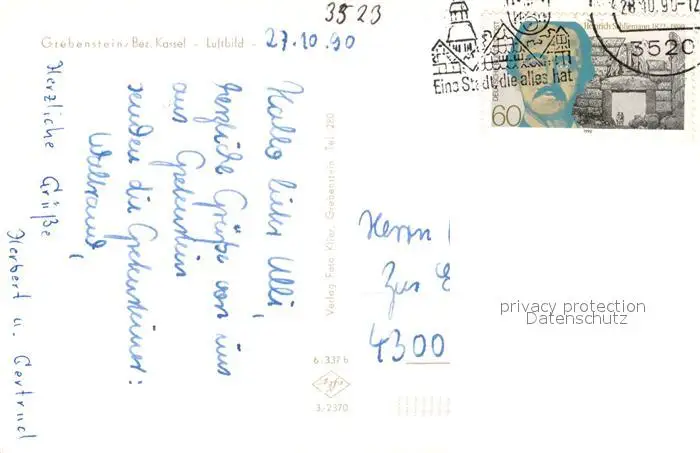 3523
Grebenstein/Bez. Kassel - Luftbild -
27.10.90
Hallo lieber Ulli,
herzliche Grüße von uns
aus Grebenstein
senden die Grebensteiner:
Waltraud,
Herzliche Grüße
Herbert u. Gertrud
Verlag Foto Kifer, Grebenstein Tel. 280
6.337b
3.2370
Eine Stadt, die alles hat
28.10.90-12
3520
Heinrich Schliemann 1822-1890
60
1990
Herrn
Zur
4300
privacy protection
Datenschutz